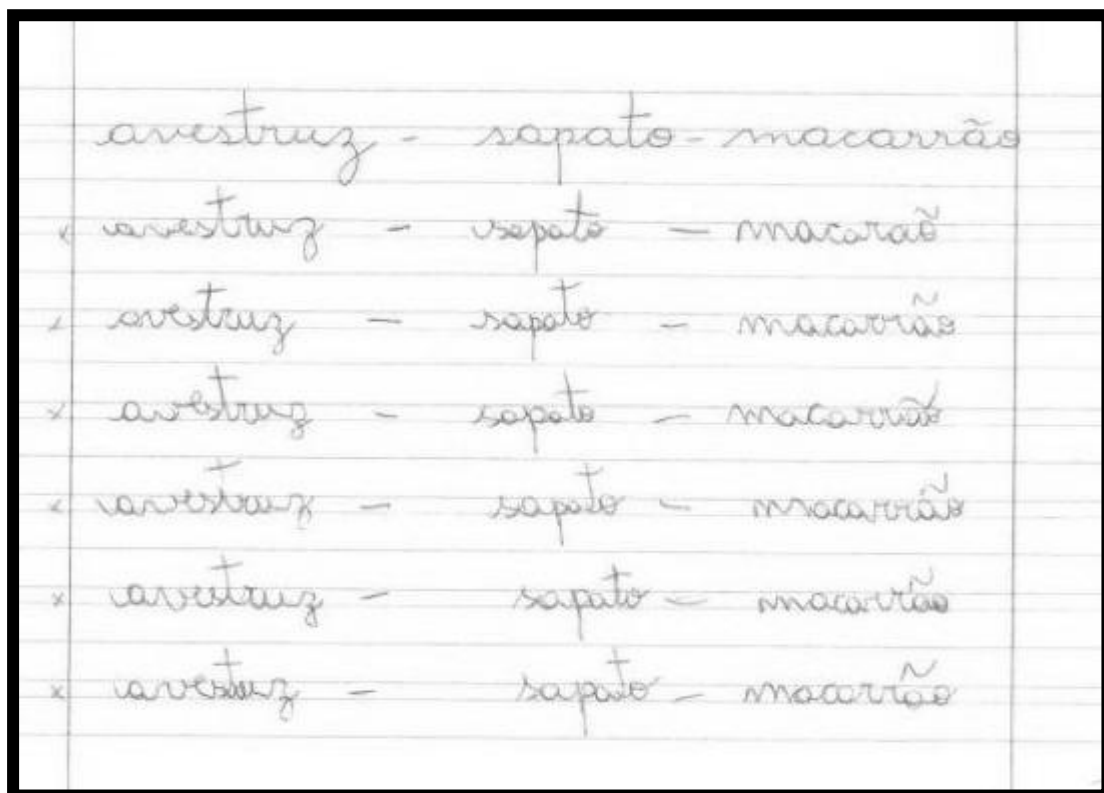 avestruz - sapato - macarrão
x avestruz - sapato - macaraõ
x avestruz - sapato - macarrão
x avestruz - sapato - macarrão
x avestruz - sapato - macarrão
x avestruz - sapato - macarrão
x avestruz - sapato - macarrão